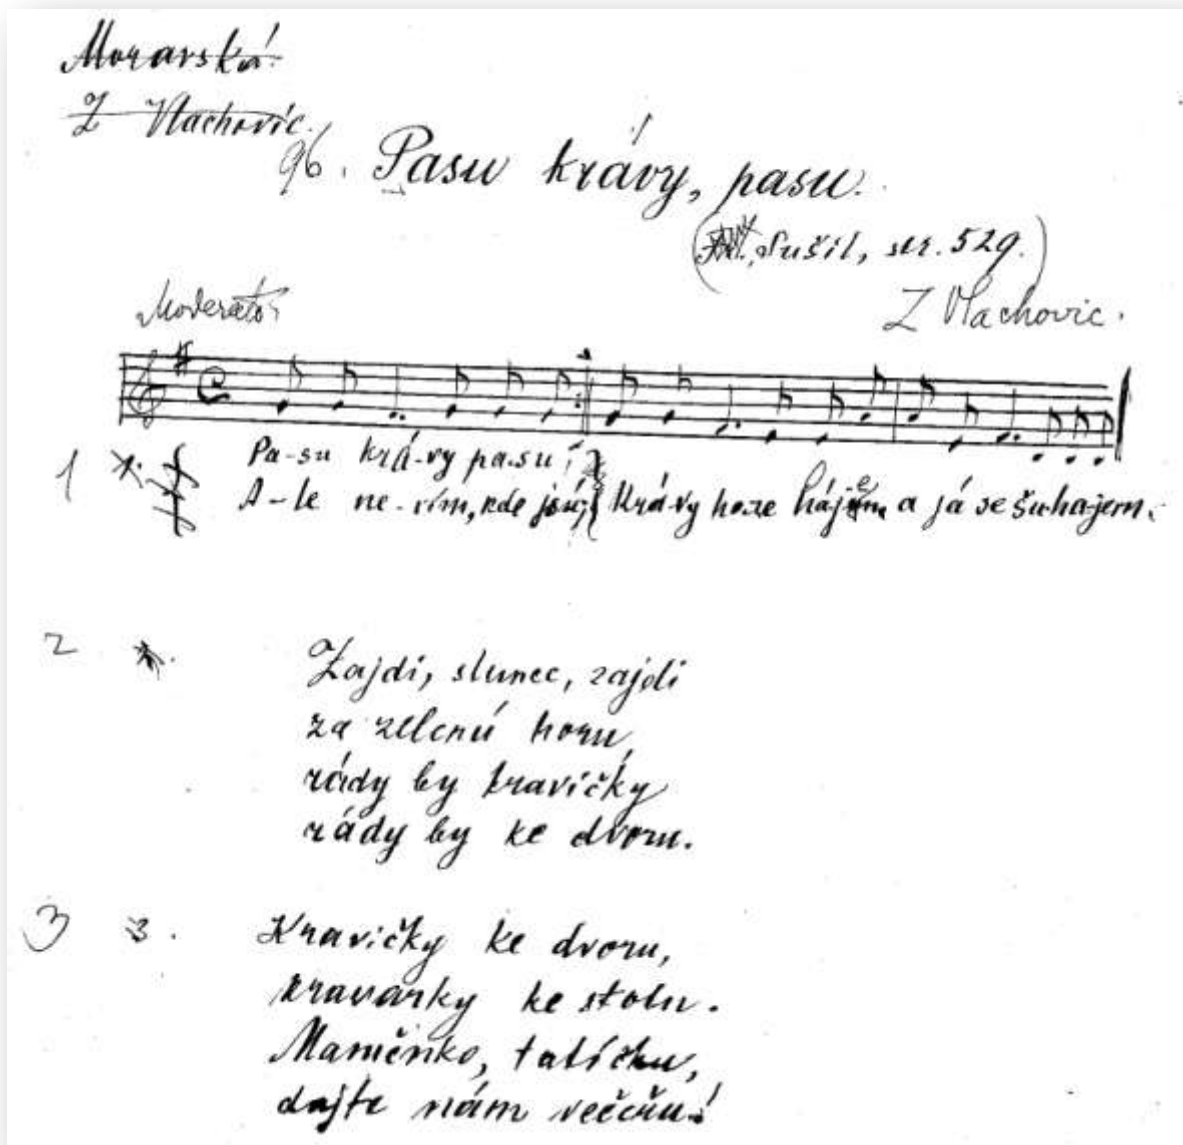 Moravská
Z Vlachovic.
96. Pasu krávy, pasu.
(Sušil, str. 529.)
Moderato
Z Vlachovic.
1 Pa-su krá-vy pa-su,
A-le ne-vím, kde jsú; Krá-vy hore hájem a já se šu-ha-jem.
2 Zajdi, slunec, zajdi
za zelenú horu,
rády by kravičky
rády by ke dvoru.
3 3. Kravičky ke dvoru,
kravarky ke stolu.
Maměnko, tatíčku,
dajte nám večeřu!